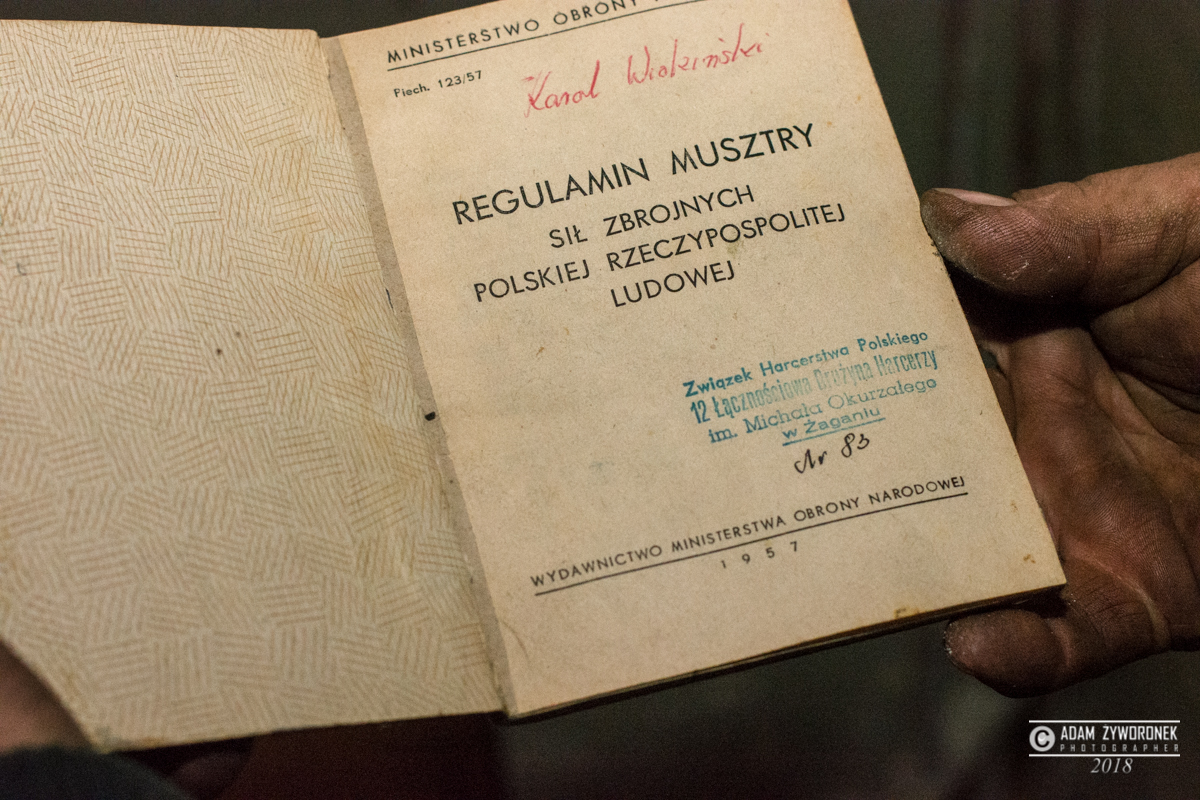 MINISTERSTWO OBRONY
Piech. 123/57
Karol
REGULAMIN MUSZTRY
SIŁ ZBROJNYCH
POLSKIEJ RZECZYPOSPOLITEJ
LUDOWEJ
Związek Harcerstwa Polskiego
12 Łącznościowa Drużyna Harcerzy
im. Michała Okurzałego
w Żaganiu
Nr 83
WYDAWNICTWO MINISTERSTWA OBRONY NARODOWEJ
1957
© ADAM ŻYWORONEK
PHOTOGRAPHER
2018